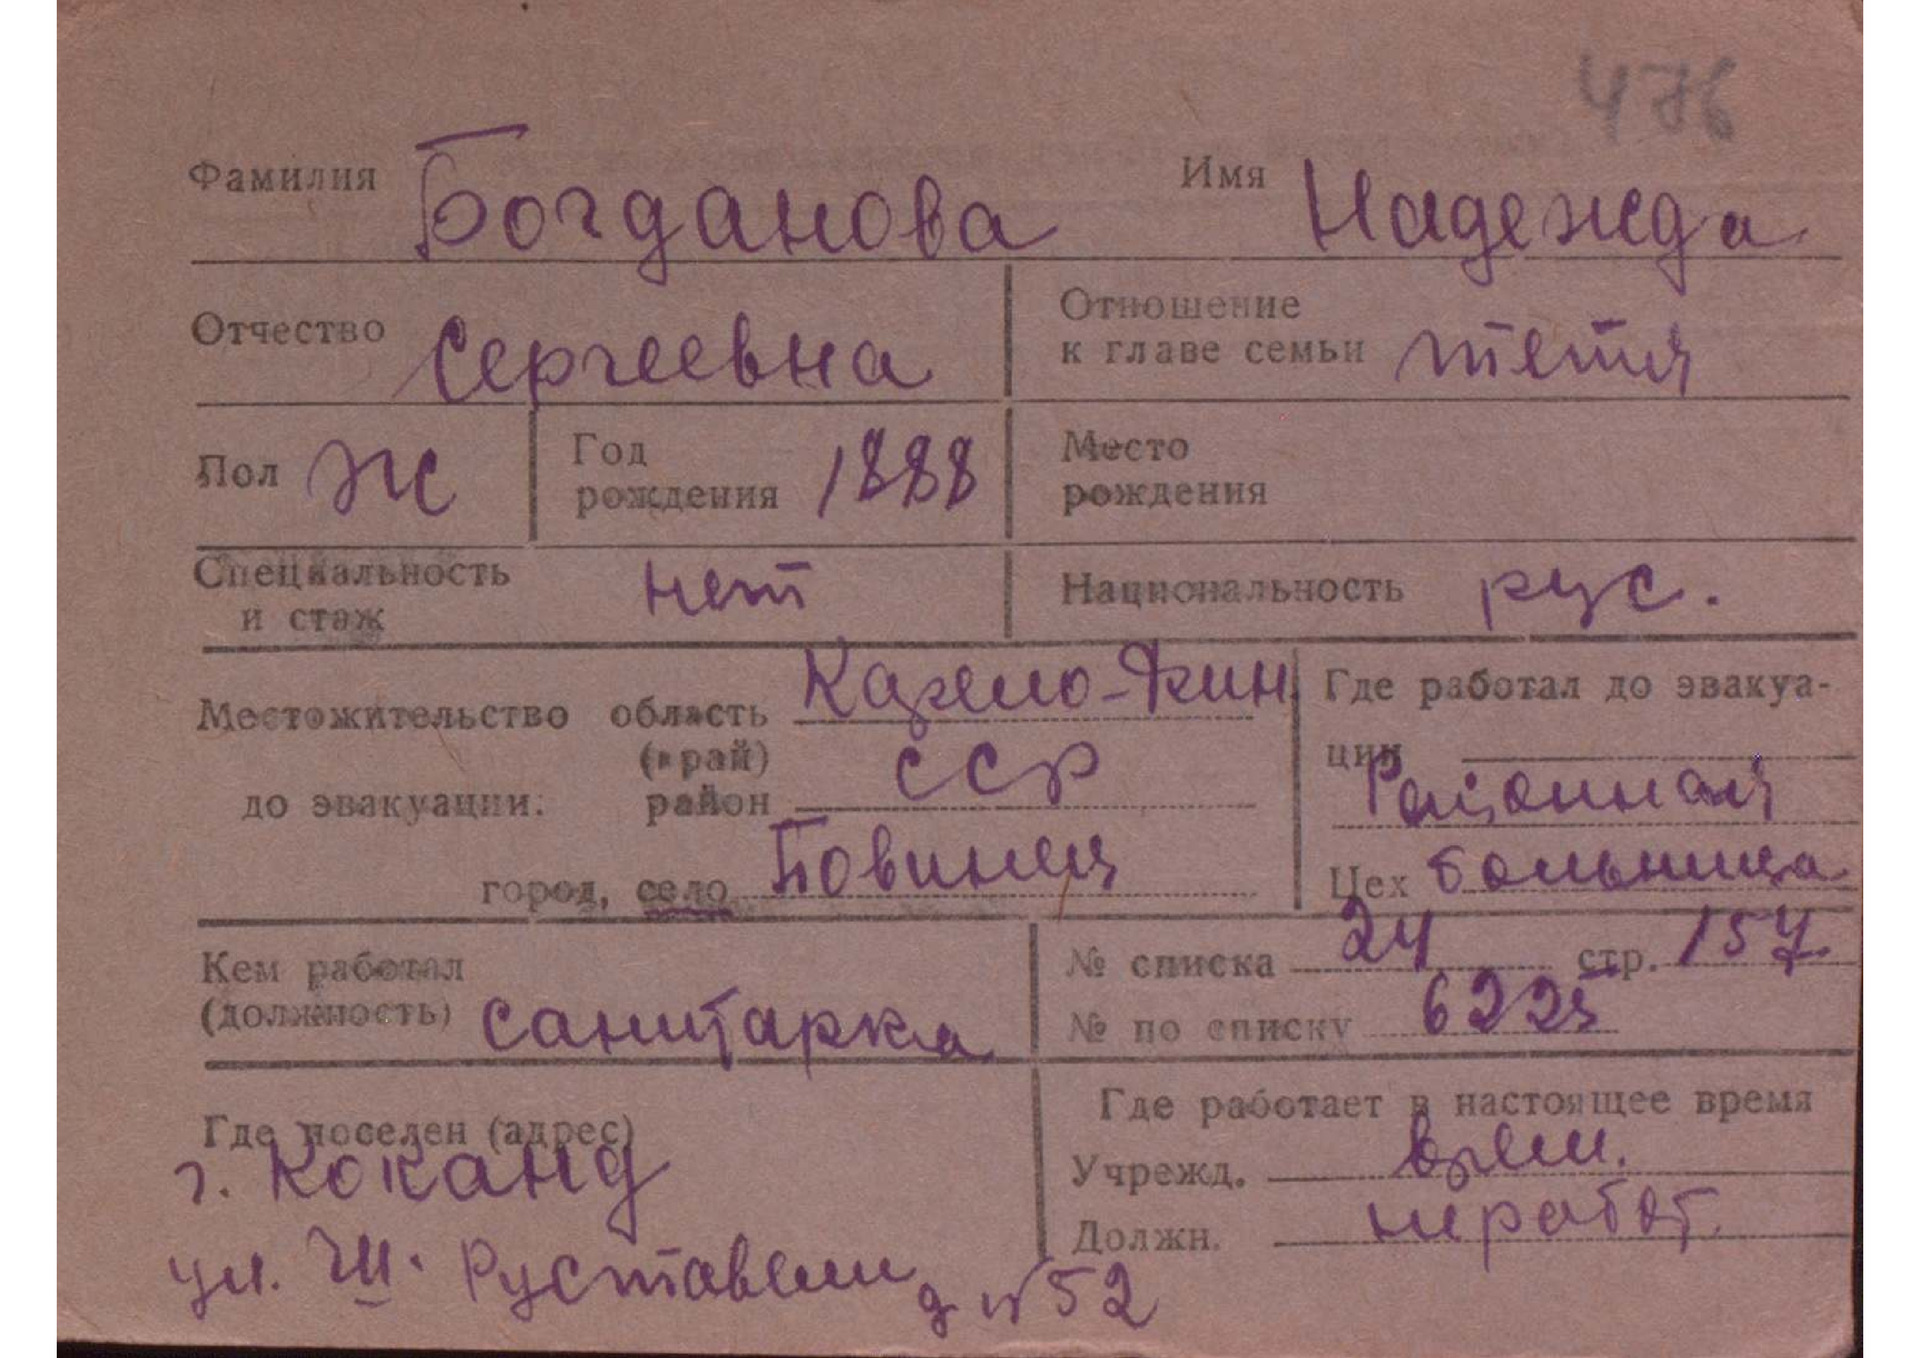 476
Фамилия Богданова Имя Надежда
Отчество Сергеевна Отношение к главе семьи тетя
Пол Ж Год рождения 1888 Место рождения
Специальность и стаж нет Национальность рус.
Местожительство область (край) Карело-Фин Где работал до эвакуа-
до эвакуации: район ССР ции Районная
город, село Повинец Цех больница
Кем работал № списка 24 стр. 157
(должность) санитарка № по списку 6225
Где поселен (адрес) Где работает в настоящее время
г. Коканд Учрежд. врем.
Должн. не работ.
ул. Ш. Руставели д №52